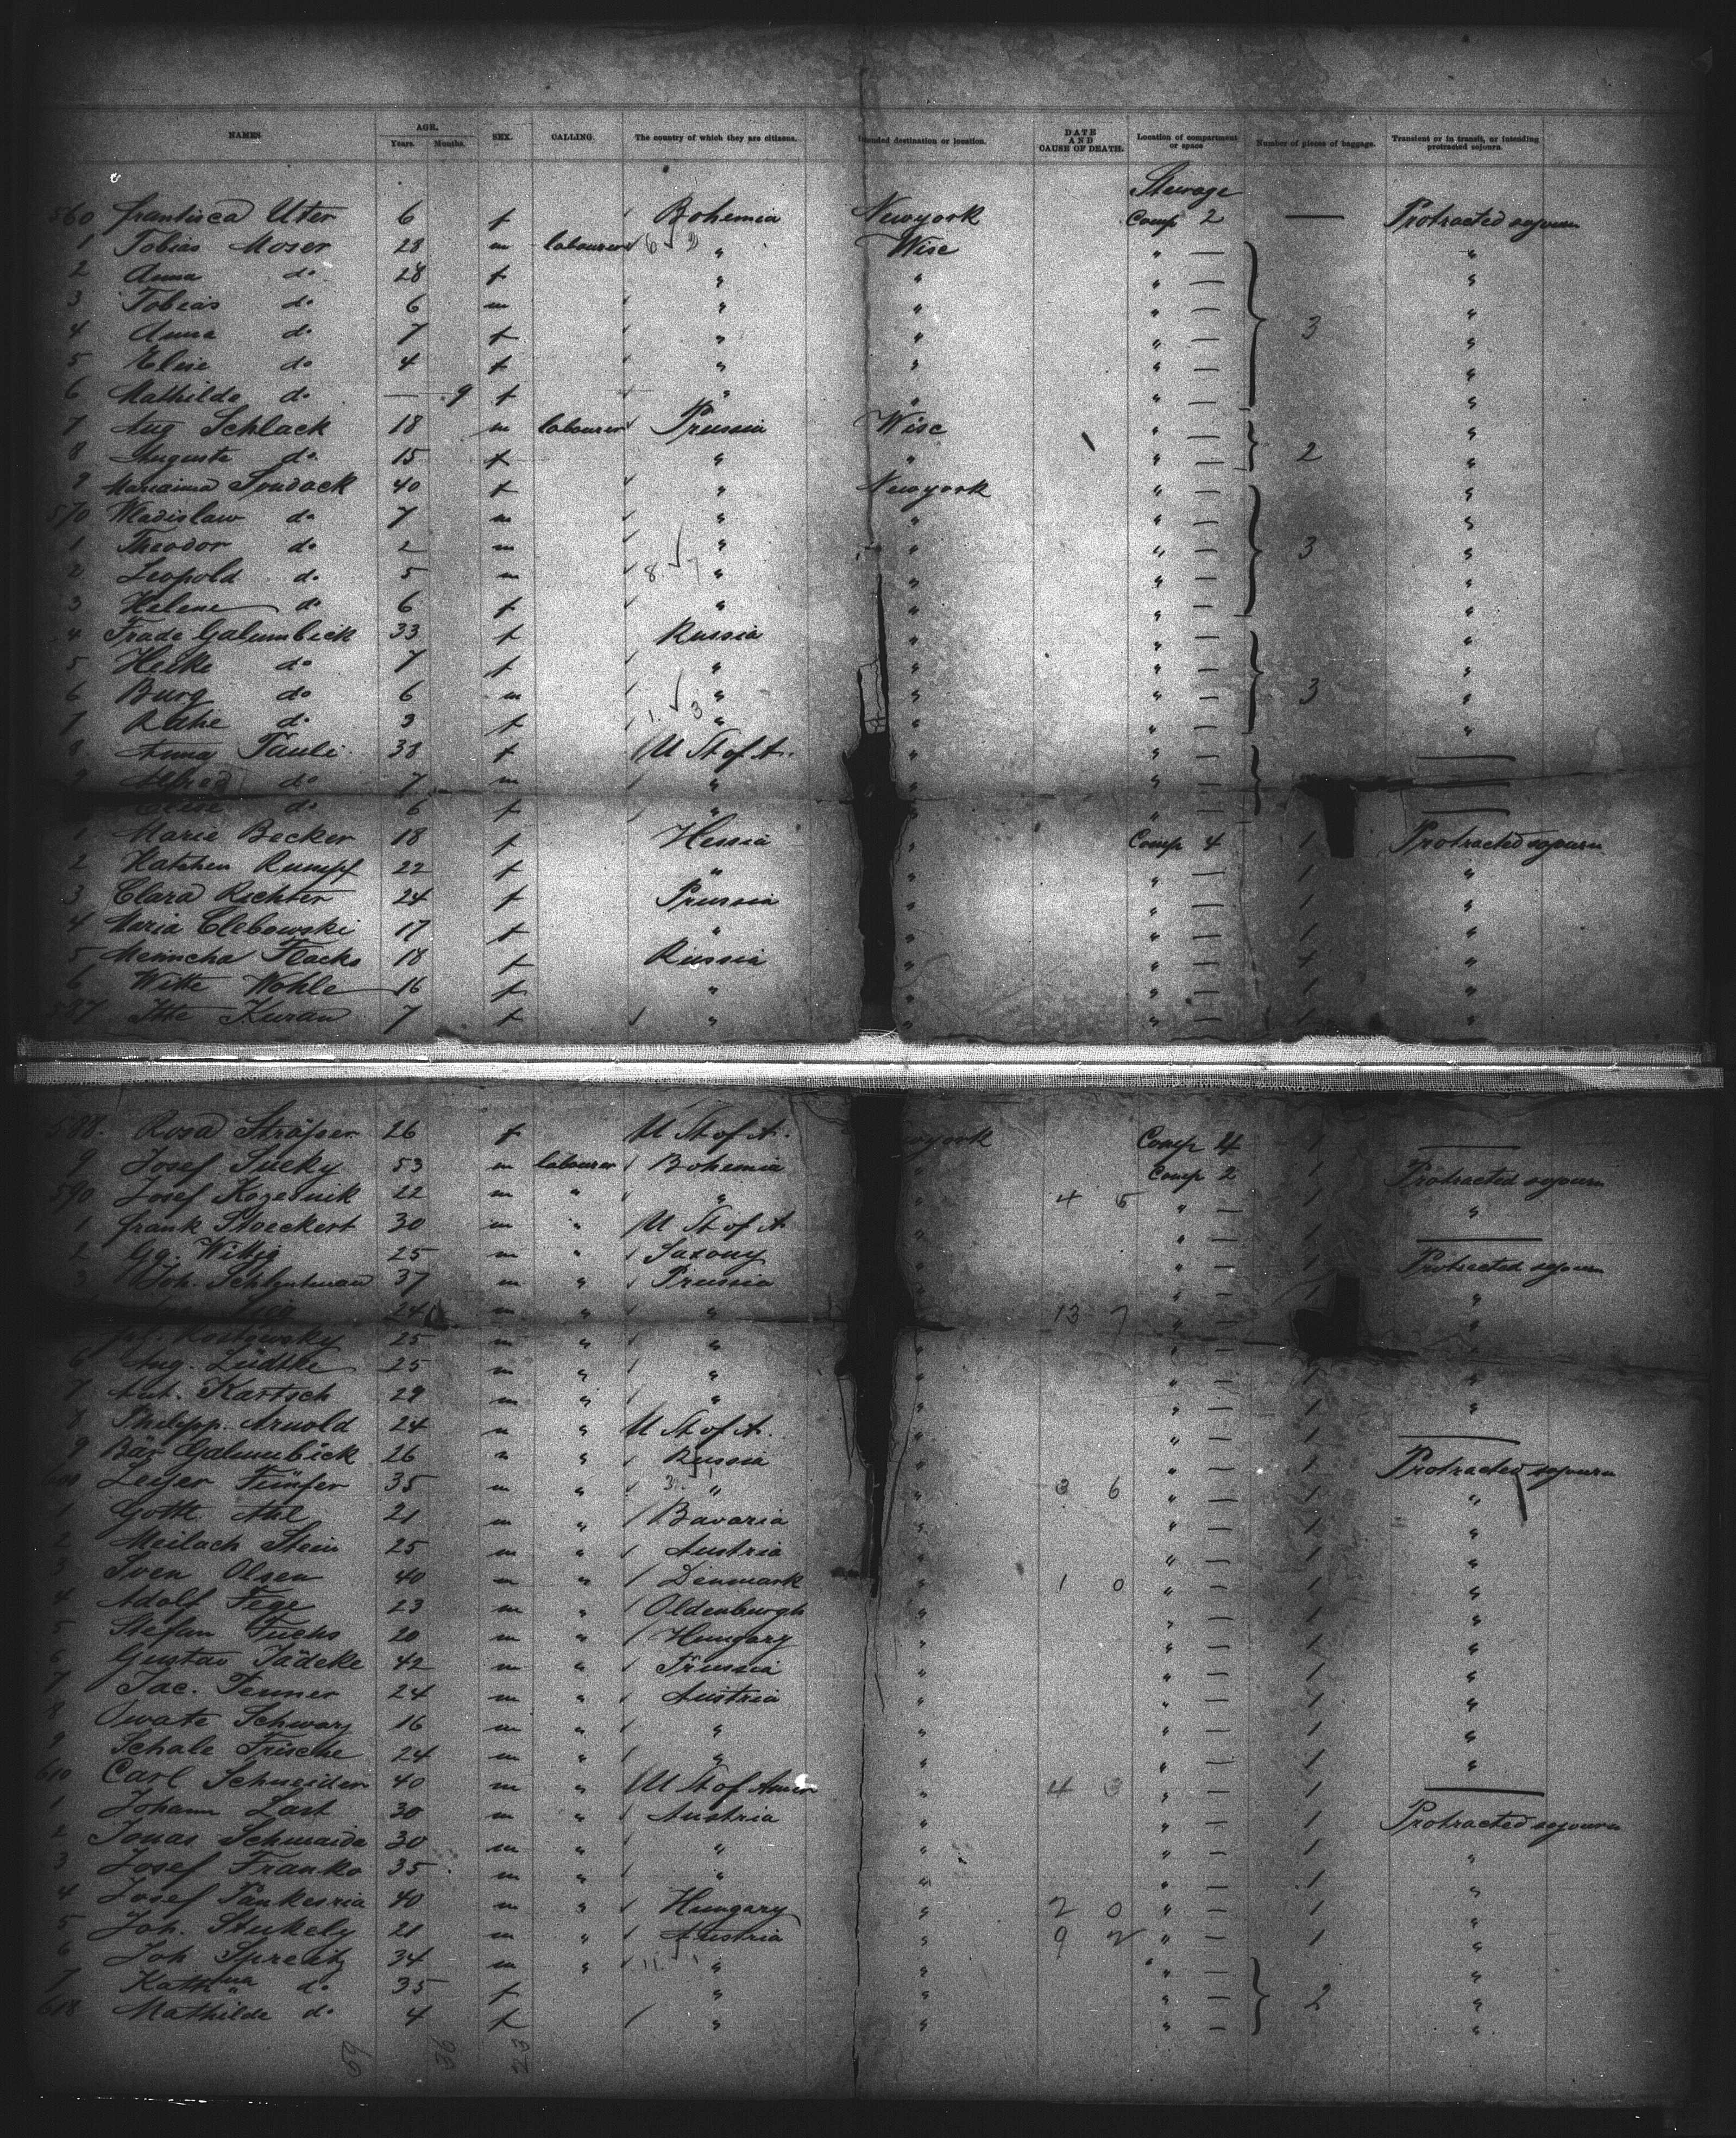 NAMES AGE. Years. Months. SEX. CALLING. The country of which they are citizens. Intended destination or location. DATE AND CAUSE OF DEATH. Location of compartment or space Number of pieces of baggage. Transient or in transit, or intending protracted sojourn.
Steerage
560 Frantisca Uter 6 f Bohemia Newyork Comp 2 — Protracted sojourn
1 Tobias Moser 28 m labourer " Wisc " — "
2 Anna do 28 f " " " — "
3 Tobias do 6 m " " " — "
4 Anna do 7 f " " " — 3 "
5 Elise do 4 f " " " — "
6 Mathilde do — 9 f " " " — "
7 Aug Schlack 18 m labourer Prussia Wisc " — "
8 Auguste do 15 f " " " — 2 "
9 Marianna Sondack 40 f " Newyork " — "
570 Wladislaw do 7 m " " " — "
1 Theodor do 2 m " " " — 3 "
2 Leopold do 5 m 8 7 " " " — "
3 Helene do 6 f " " " — "
4 Frade Galumbick 33 f Russia " " — "
5 Heike do 7 f " " " — "
6 Burg do 6 m " " " — 3 "
7 Rahe do 3 f 1 3 " " " — "
8 Anna Pauli 38 f U St of A. " " — —
9 Alfred do 7 m " " " — —
Elise do 6 f " " " — —
1 Marie Becker 18 f Hessia " Comp 4 1 Protracted sojourn
2 Katchen Rumpf 22 f " " " — 1 "
3 Clara Richter 24 f Prussia " " — 1 "
4 Maria Clebowski 17 f " " " — 1 "
5 Menucha Flacks 18 f Russia " " — 1 "
6 Witte Wohle 16 f " " " — 1 "
587 Itte Kuran 7 f " " " — 1 "
588. Rosa Sträfser 26 f U St of A. york Comp 4 1 —
9 Josef Sucky 53 m labourer Bohemia " Comp 2 1 Protracted sojourn
590 Josef Kozesnik 22 m " " " 4 5 " — 1 "
1 Frank Stoeckert 30 m " U St of A " " — 1 —
2 Gg. Wittig 25 m " Saxony " " — 1 Protracted sojourn
3 Joh. Schlutmann 37 m " Prussia " " — 1 "
24 m " " 13 7 " — "
Kostowsky 25 m " " " " — "
6 Aug. Lüdtke 25 m " " " " — 1 "
7 Ant. Kartsch 29 m " " " " — 1 "
8 Philipp. Arnold 24 m " U St of A. " " — 1 —
9 Bär Galumbick 26 m " Russia " " — 1 Protracted sojourn
600 Leijer Fünfer 35 m " 3 " " 3 6 " — 1 "
1 Gottl. Ahl 21 m " Bavaria " " — 1 "
2 Meilach Stein 25 m " Austria " " — 1 "
3 Sven Olsen 40 m " Denmark " 1 0 " — 1 "
4 Adolf Fege 23 m " Oldenburgh " " — 1 "
5 Stefan Fuchs 20 m " Hungary " " — 1 "
6 Gustav Jädeke 42 m " Prussia " " — 1 "
7 Jac. Tenner 24 m " Austria " " — 1 "
8 Owate Schwarz 16 m " " " " — 1 "
9 Schale Frische 24 m " " " " — 1 "
610 Carl Schneider 40 m " U St of Amer " 4 3 " — 1 —
1 Johann Last 30 m " Austria " " — 1 Protracted sojourn
2 Jonas Schmaida 30 m " " " " — 1 "
3 Josef Franko 35 m " " " " — 1 "
4 Josef Pankesria 40 m " Hungary " 2 0 " — 1 "
5 Joh. Stukely 21 m " Austria " 9 2 " — 1 "
6 Joh Spreitz 34 m " 11 1 " " — "
7 Kathna do 35 f " " " — 2 "
618 Mathilde do 4 f " " " — "
59 36 23